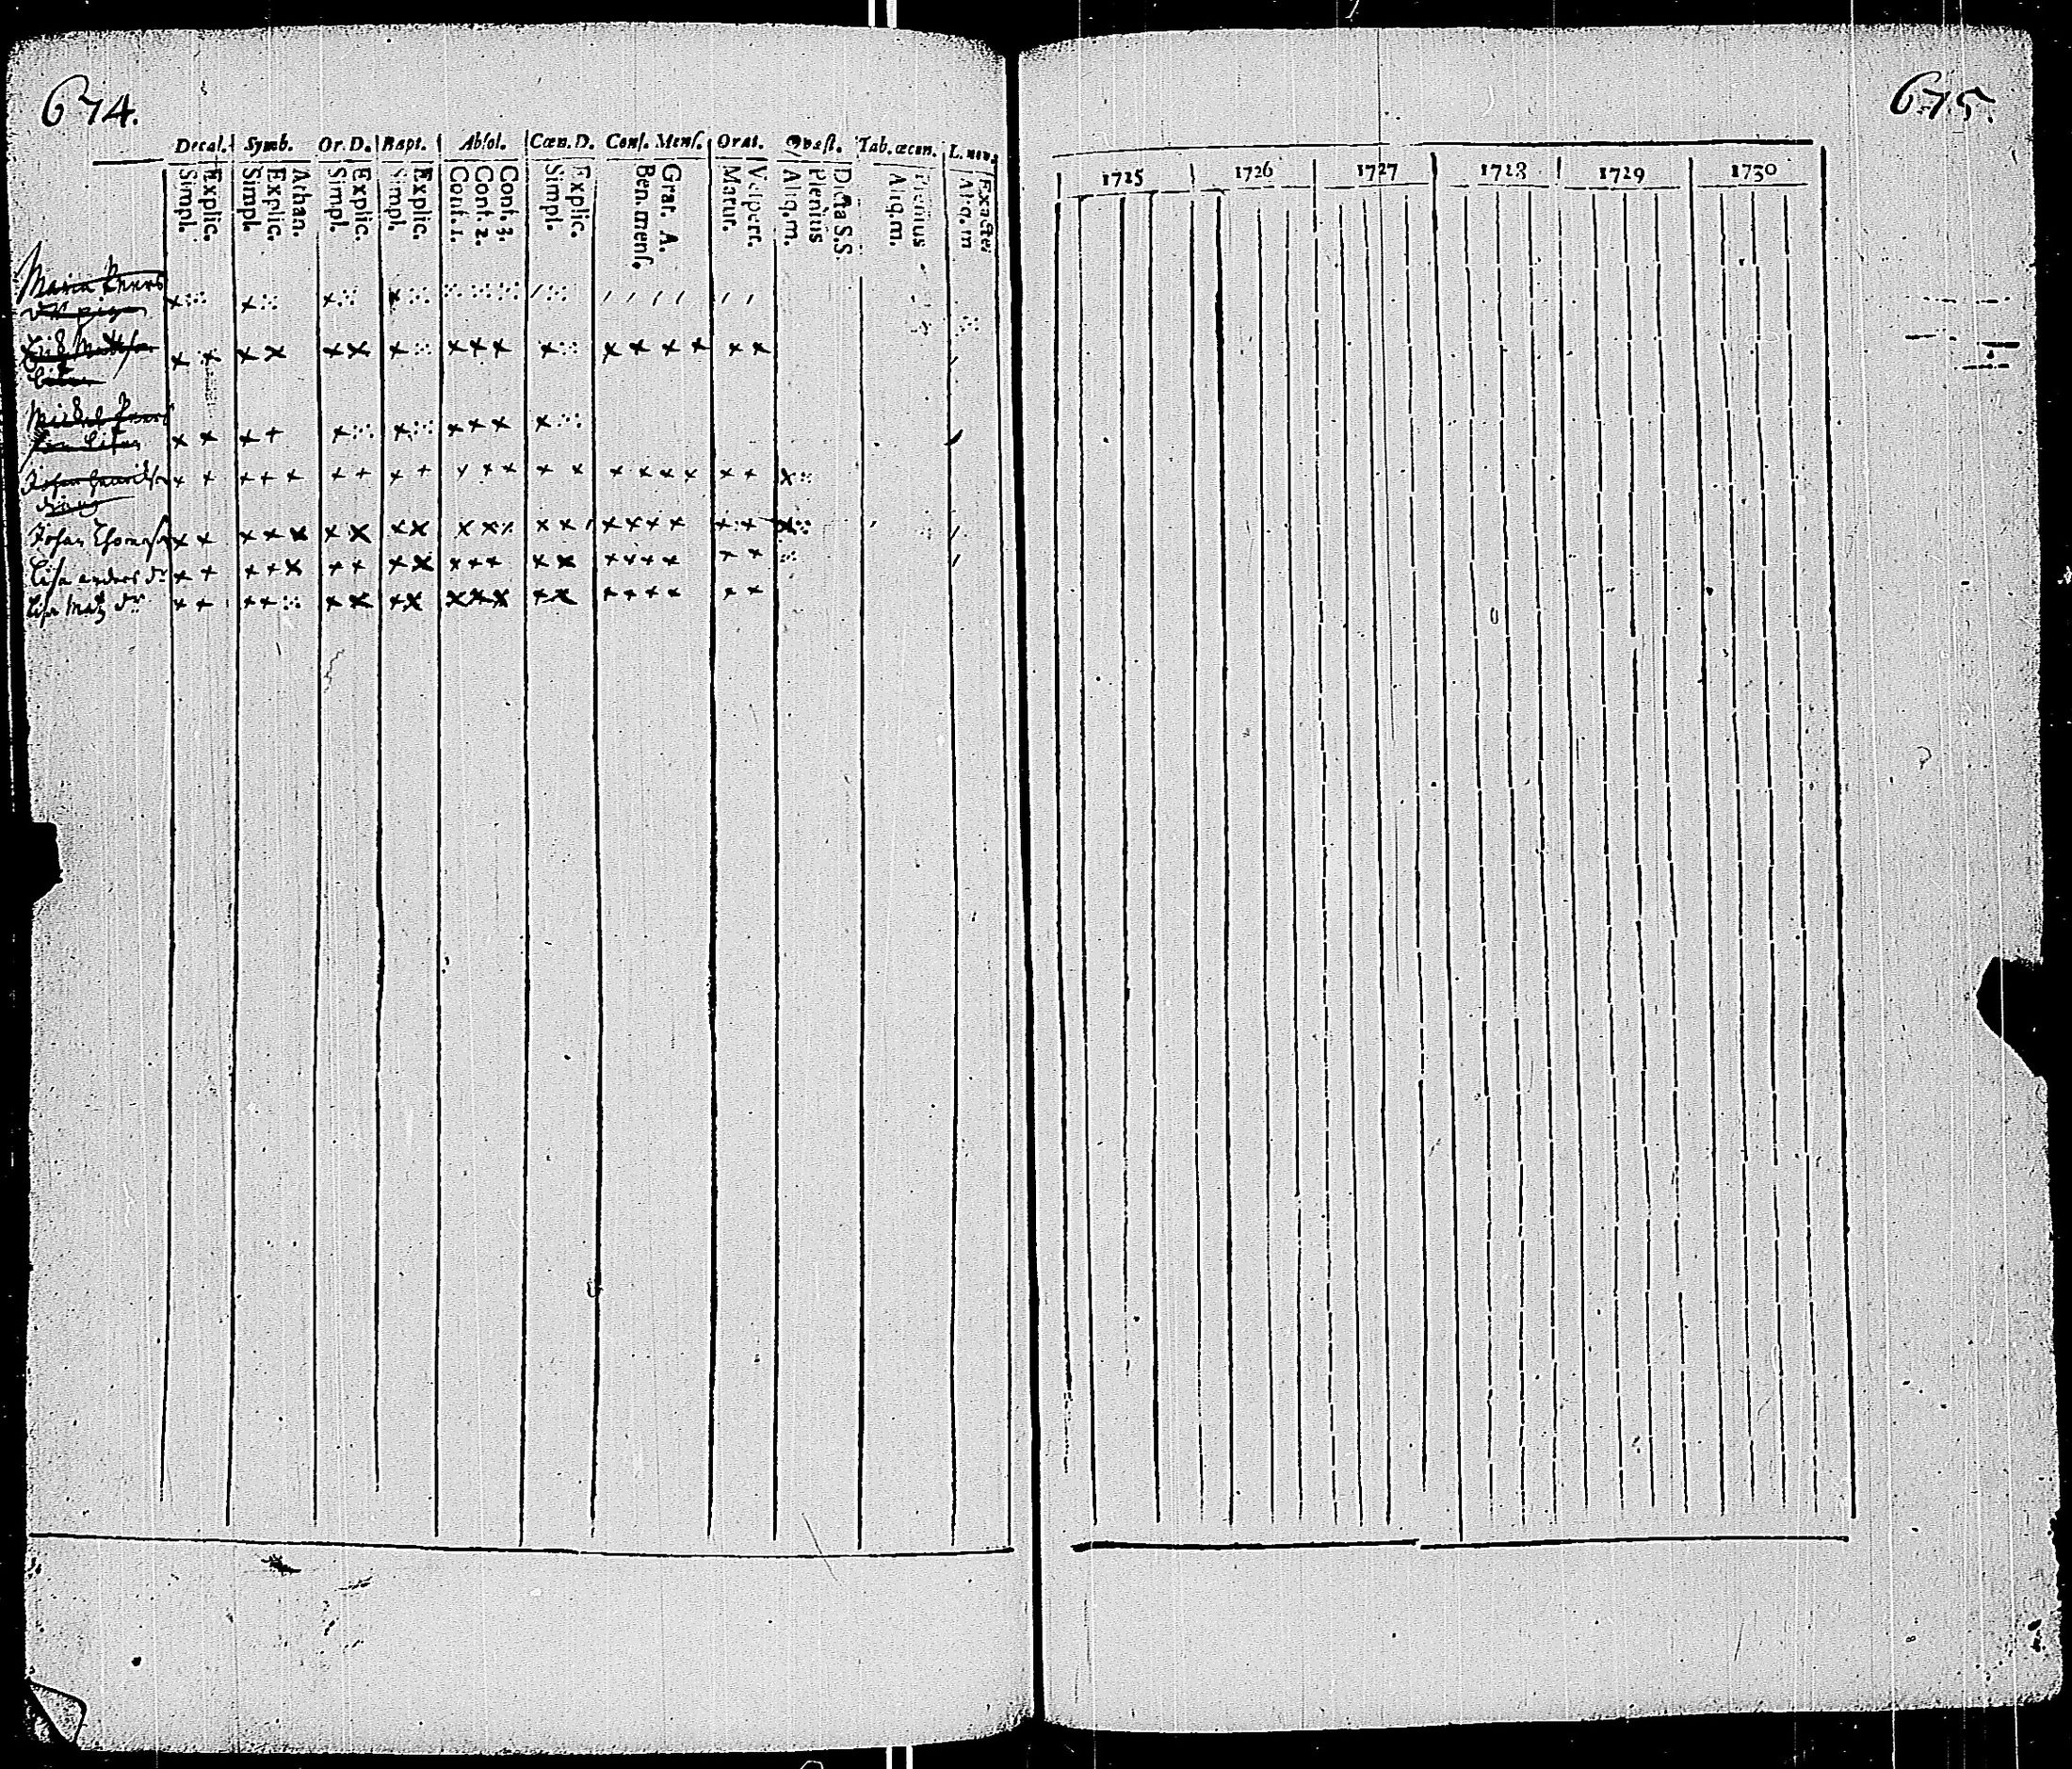 674.
Decal. Symb. Or. D. Bapt. Absol. Cœn. D. Conf. Menſ. Orat. Qvæſt. Tab. œcon. L. nov.
Explic. Simpl.
Athan. Explic. Simpl.
Explic. Simpl.
Explic. Simpl.
Conf. 3. Conf. 2. Conf. 1.
Explic. Simpl.
Grat. A. Ben. menſ.
Veſpert. Matut.
Dicta S.S. Plenius Aliq. m.
Plenius Aliq. m.
Exacte Aliq. m
Maria
Erik Mattsson
Michel
Johan Henrickson
dräng
Johan Thomasson
Lisa anders dr
Lisa Matz dr
675.
1725 1726 1727 1728 1729 1730